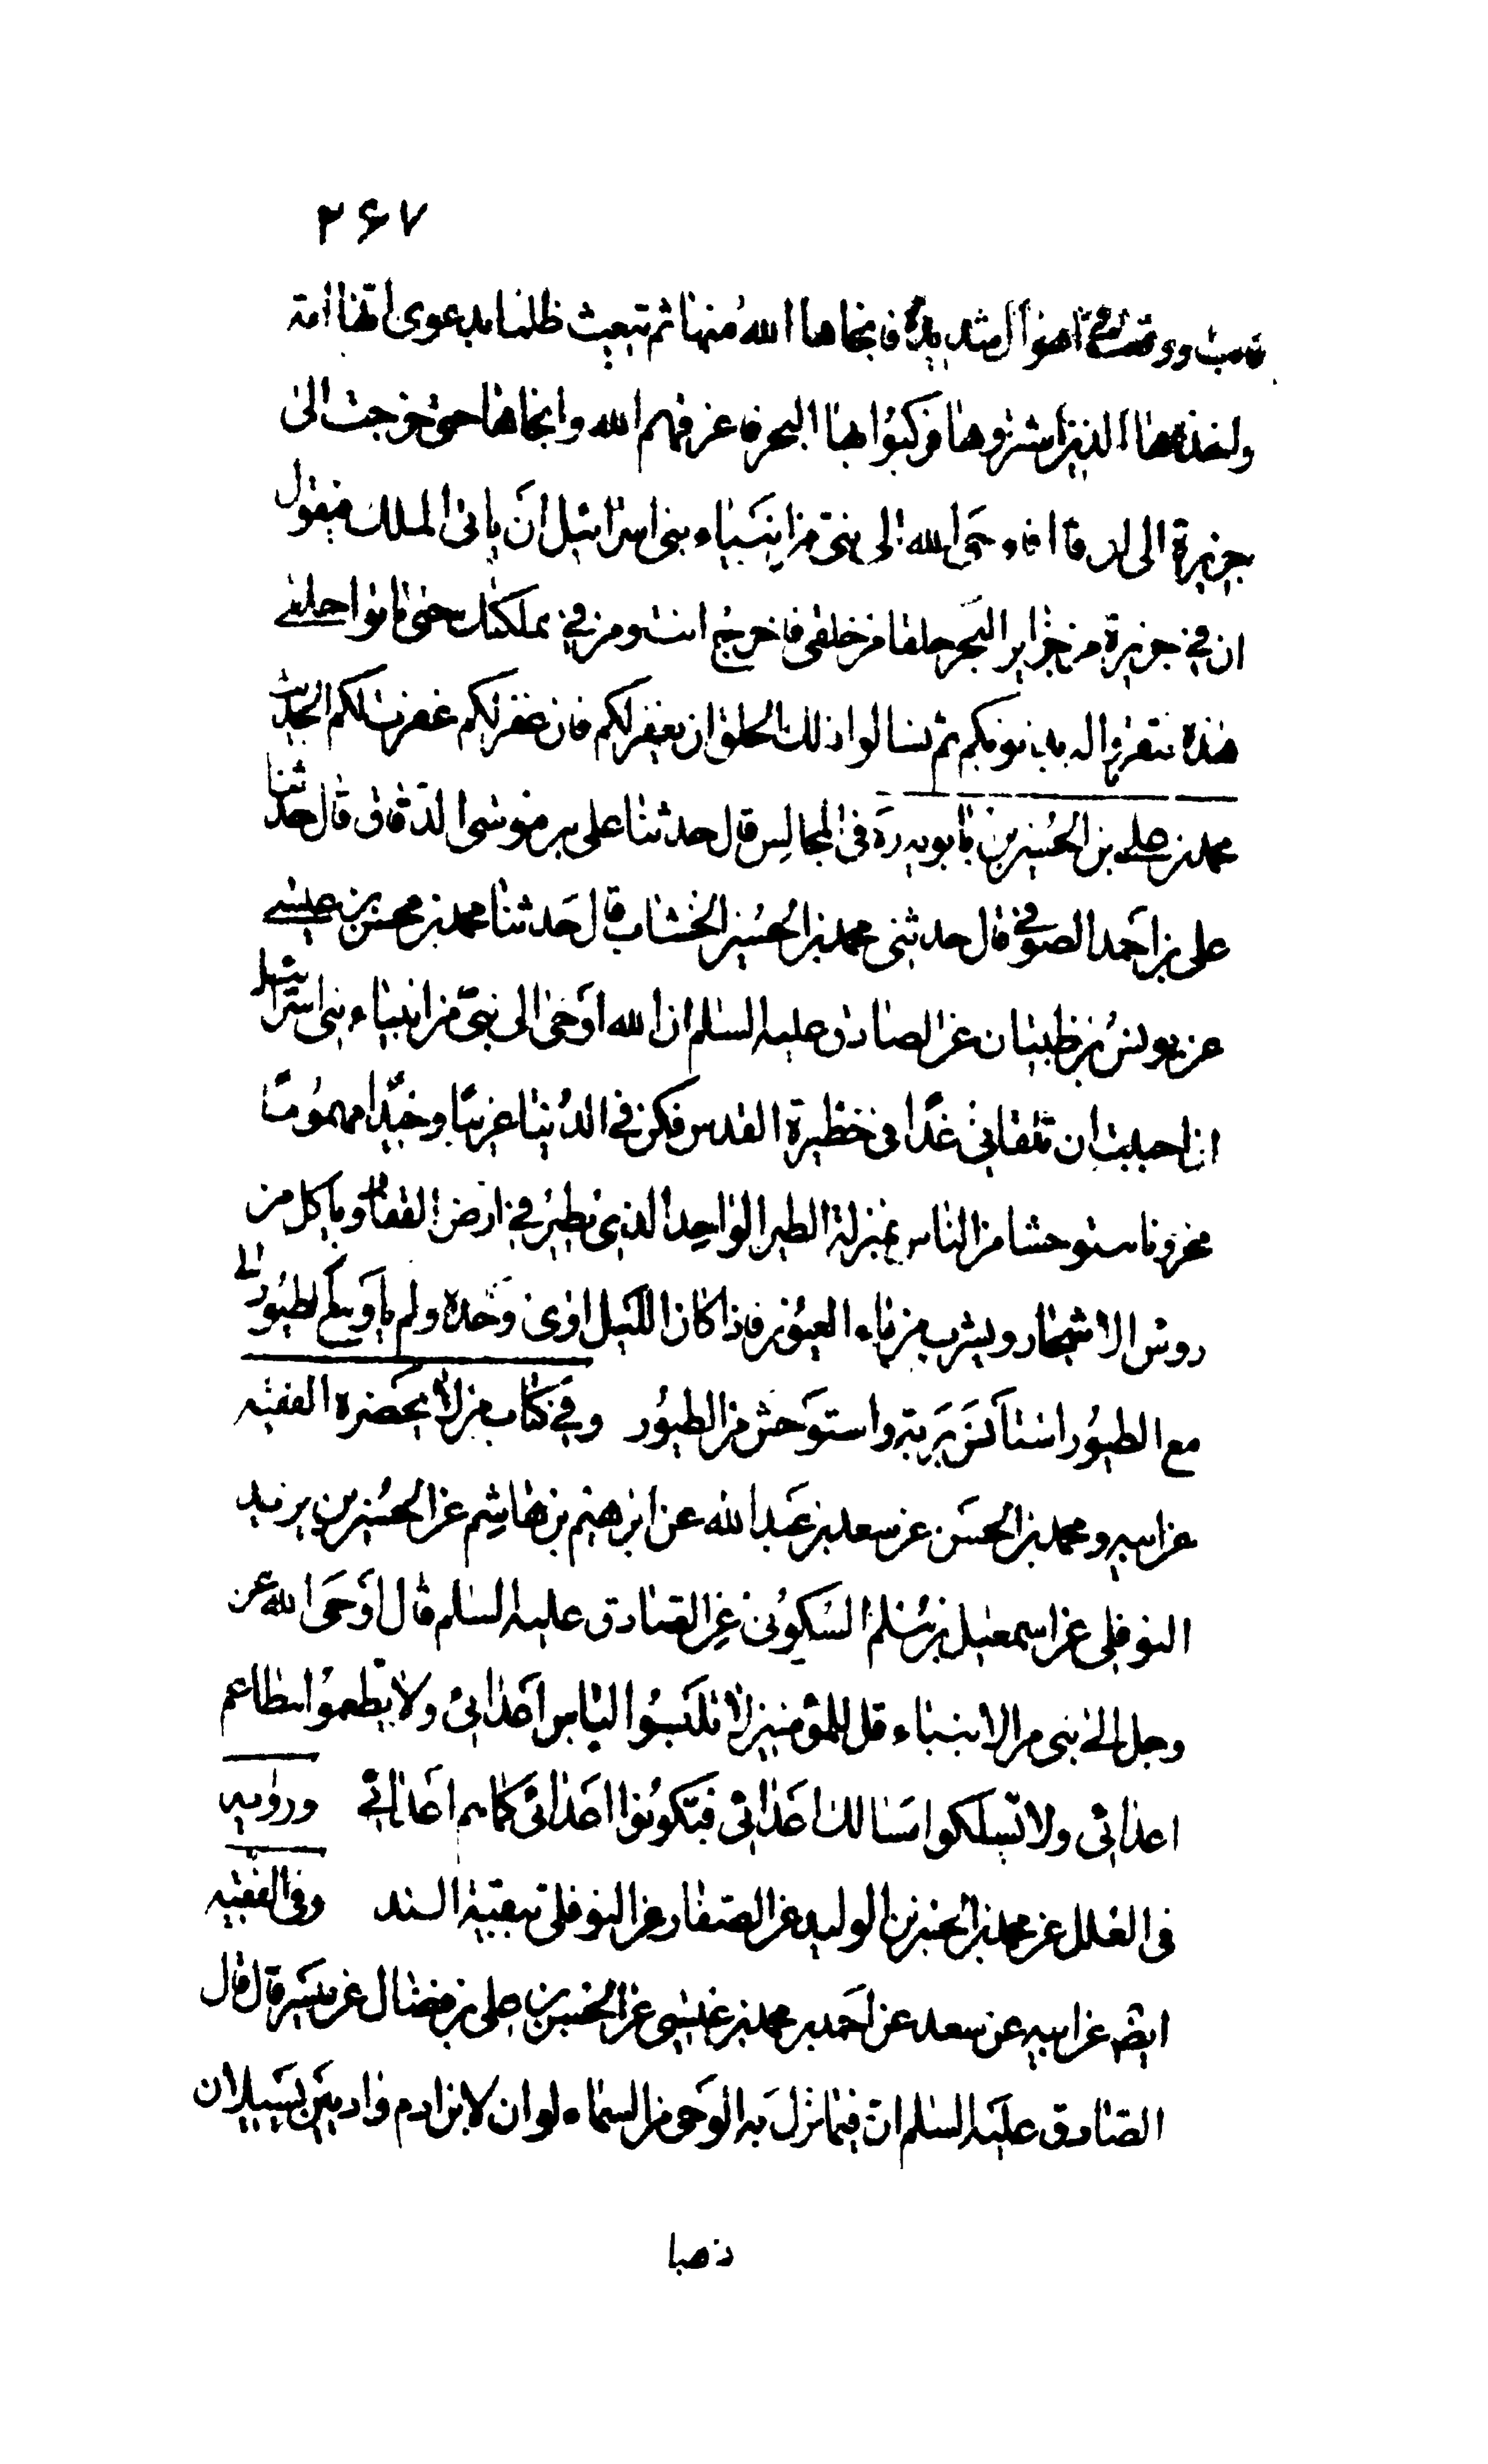 ٢۶٧
اهوال شديدة فانجاها الله منها ثم تبعث ظلما بدعوى انها امة
الذين اشتروها فركبوا بها البحر فاغرقهم الله وانجاها حتى خرجت الى
جزيرة الى ان قال فاوحى الله الى نبى من انبياء بنى اسرائيل ان ياتى الملك فيقول
ان فى جزيرة من جزاير البحر خلقا من خلقى فاخرج انت ومن فى مملكتك حتى تاتوا خلقى
هذه فتقروا له بذنوبكم ثم تسالوا ذلك الخلق ان يغفر لكم فان غفر لكم غفرت لكم الحديث
محمد بن على بن الحسين بن بابويه ره فى المجالس قال حدثنا على بن موسى الدقاق قال حدثنا
على بن احمد الصوفى قال حدثنى محمد بن الحسين الخشاب قال حدثنا محمد بن محسن بن عيسى
عن يونس بن ظبيان عن الصادق عليه السلم ان الله اوحى الى نبى من انبياء بنى اسرائيل
ان احببت ان تلقانى غدا فى حظيرة القدس فكن فى الدنيا غريبا وحيدا مهموما
محزونا مستوحشا من الناس بمنزلة الطير الواحد الذى يطير فى ارض القفار وياكل من
روس الاشجار ويشرب من ماء العيون فاذا كان الليل اوى وحده ولم ياو
مع الطيور استانس بربه واستوحش من الطيور وفى كتاب من لا يحضره الفقيه
عن ابيه ومحمد بن الحسن عن سعد بن عبد الله عن ابرهيم بن هاشم عن الحسين بن يزيد
النوفلى عن اسمعيل بن مسلم السكونى عن الصادق عليه السلم قال اوحى الله عز
وجل الى نبى من الانبياء قل للمؤمنين لا تلبسوا لباس اعدائى ولا تطعموا مطاعم
اعدائى ولا تسلكوا مسالك اعدائى فتكونوا اعدائى كما هم اعدائى ورواه
فى العلل عن محمد بن الحسن بن الوليد عن الصفار عن النوفلى ببقية السند وفى الفقيه
ايضه عن ابيه عن سعد عن احمد بن محمد بن عيسى عن الحسن بن على بن فضال عن ميسر قال قال
الصادق عليه السلم ان فيما نزل به الوحى من السماء لو ان لابن ادم واديين يسيلان
ذهبا